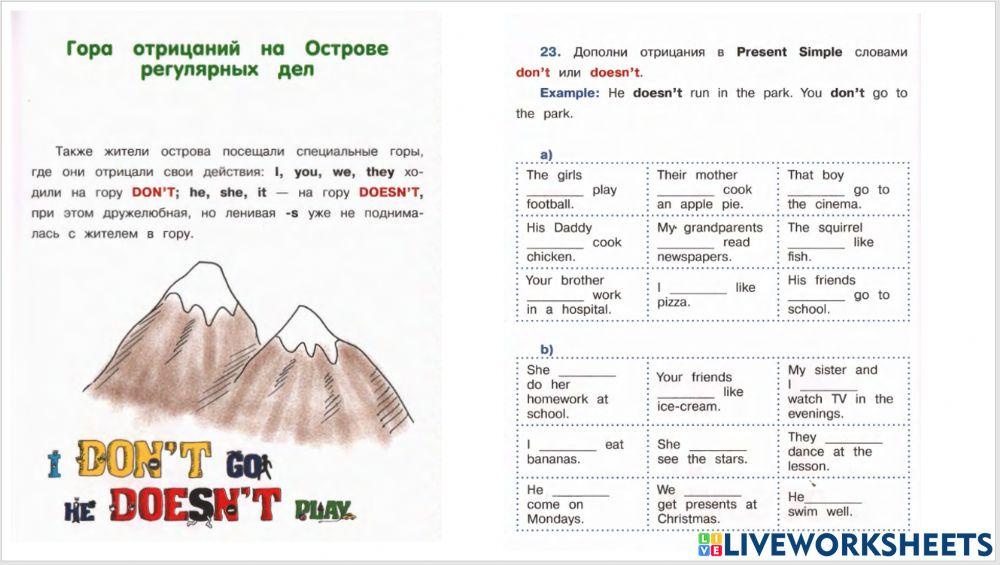 Гора отрицаний на Острове
регулярных дел
Также жители острова посещали специальные горы,
где они отрицали свои действия: I, you, we, they хо-
дили на гору DON'T; he, she, it — на гору DOESN'T,
при этом дружелюбная, но ленивая -s уже не поднима-
лась с жителем в гору.
I DON'T GO
HE DOESN'T PLAY
23. Дополни отрицания в Present Simple словами
don't или doesn't.
Example: He doesn't run in the park. You don't go to
the park.
a)
The girls
________ play
football.
Their mother
________ cook
an apple pie.
That boy
________ go to
the cinema.
His Daddy
________ cook
chicken.
My grandparents
________ read
newspapers.
The squirrel
________ like
fish.
Your brother
________ work
in a hospital.
I ________ like
pizza.
His friends
________ go to
school.
b)
She ________
do her
homework at
school.
Your friends
________ like
ice-cream.
My sister and
I ________
watch TV in the
evenings.
I ________ eat
bananas.
She ________
see the stars.
They ________
dance at the
lesson.
He ________
come on
Mondays.
We ________
get presents at
Christmas.
He________
swim well.
LIVE LIVEWORKSHEETS